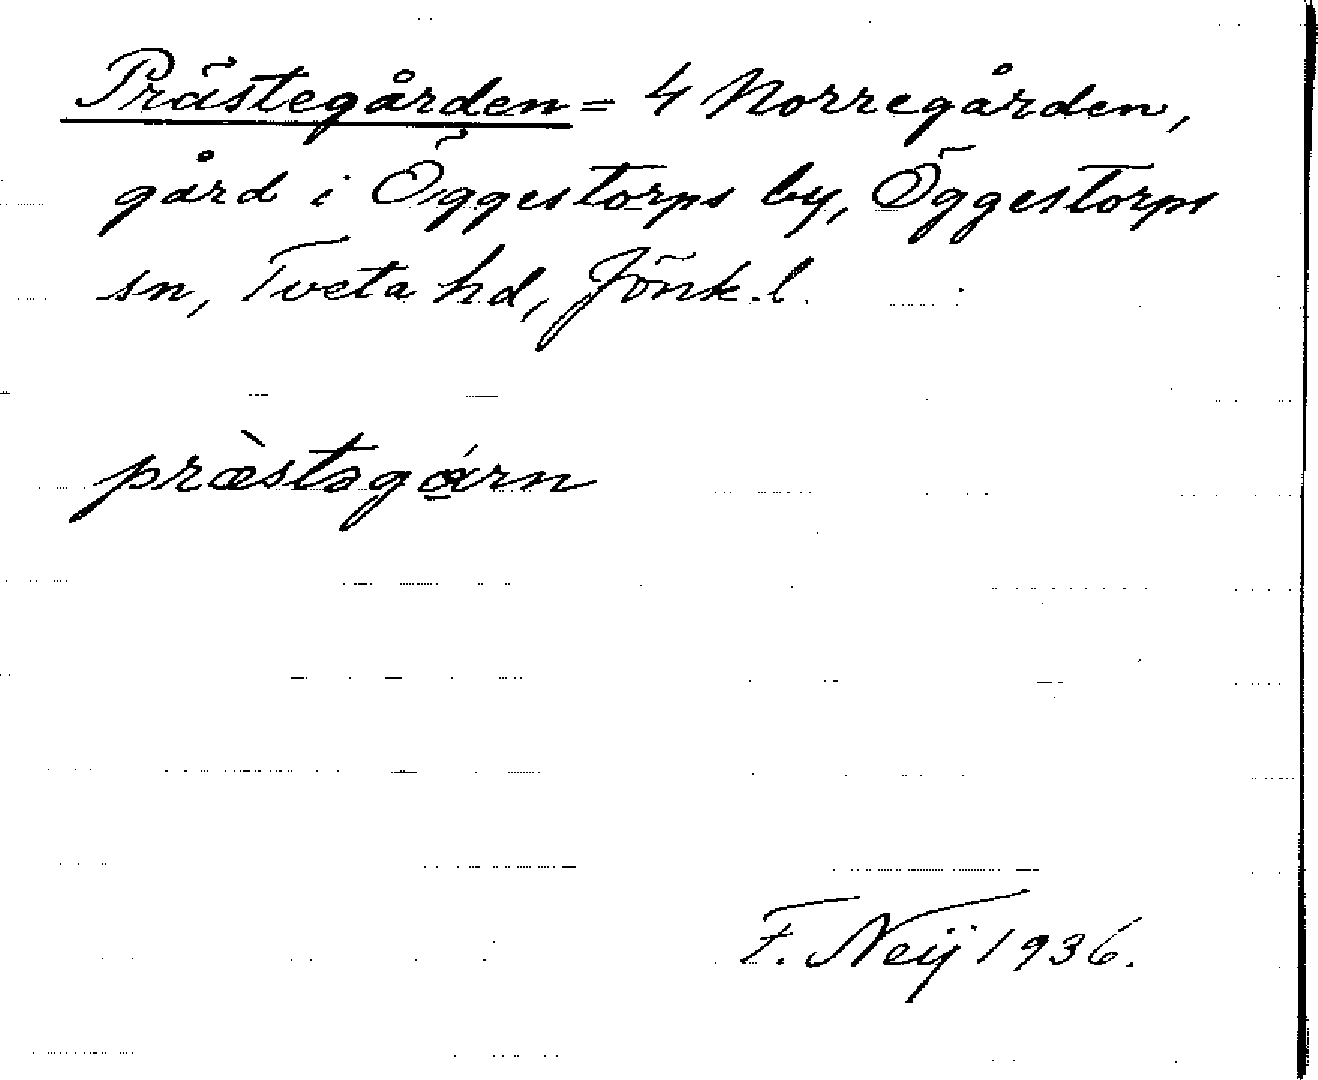 Prästegården = 4 Norregården,
gård i Öggestorps by, Öggestorps
sn, Tveta hd, Jönk. l.
præ̀stəgά̱rn
F. Neij 1936.